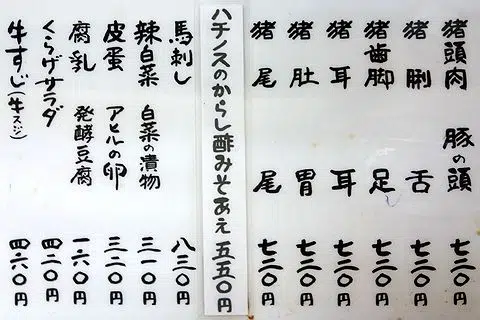 猪頭肉 豚の頭 七三〇円
猪脷 舌 七三〇円
猪歯脚 足 七三〇円
猪耳 耳 七三〇円
猪肚 胃 七三〇円
猪尾 尾 七三〇円
ハチノスのからし酢みそあえ 五五〇円
馬刺し 八三〇円
辣白菜 白菜の漬物 三一〇円
皮蛋 アヒルの卵 三二〇円
腐乳 発酵豆腐 一六〇円
くらげサラダ 四二〇円
牛すじ(牛スジ) 四六〇円